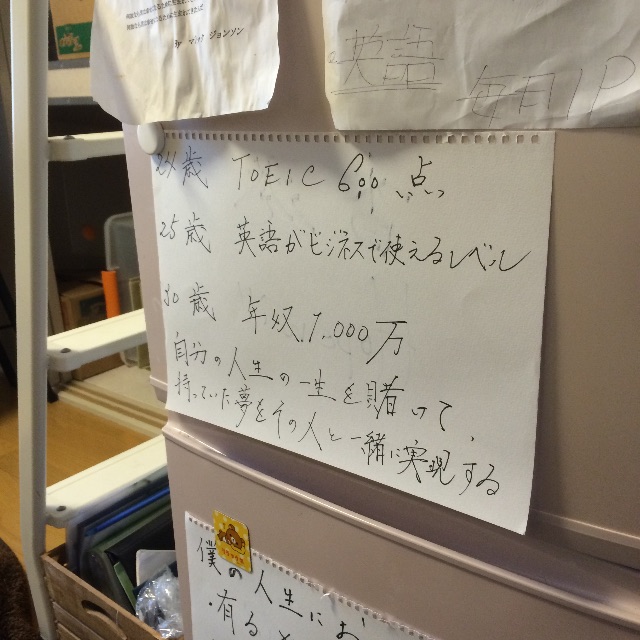 By マイク ジョンソン
英語
毎日1P
24歳 TOEIC 600点
25歳 英語がビジネスで使えるレベル
30歳 年収1,000万
自分の人生の一生を賭けて、
持っていた夢をその人と一緒に実現する
僕の人生にお
・有る